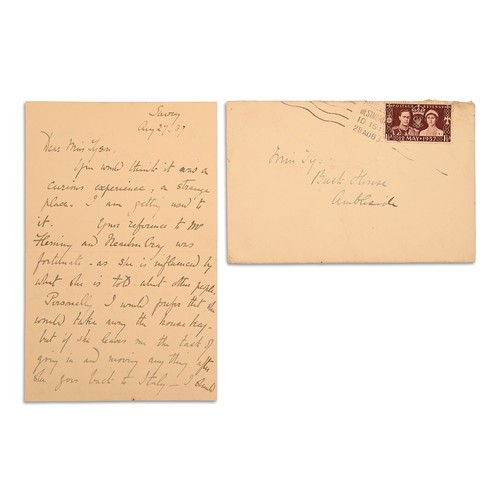 Sawrey
Aug 27. 37
Dear Miss Tyson
You would think it was a
curious experience, a strange
place. I am getting used to
it. Your reference to Mr
Heming and was
fortunate - as she is influenced by
what she is told about other people.
Personally I would prefer that she
would take away the house key -
but if she leaves me the task of
going in and moving anything after
she goes back to Italy - I
10 15
28 AUG
POSTAGE REVENUE
12 MAY 1937
Miss Tyson
House
Ambleside